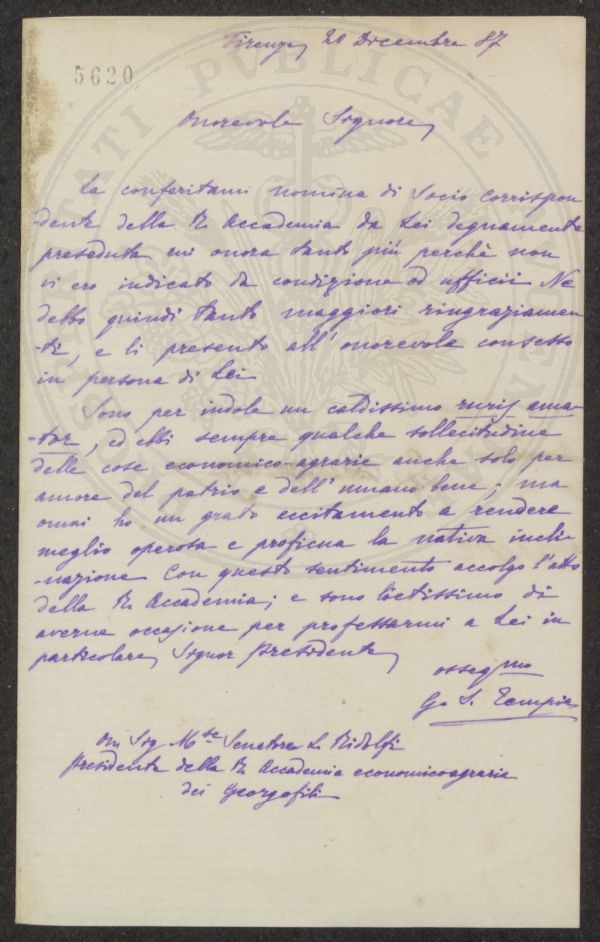 Firenze, 20 Decembre 87
5620
PROSPERITATI PVBLICAE AVGENDAE
Onorevole Signore,
La conferitami nomina di Socio Corrispon
-dente della R. Accademia da Lei degnamente
preseduta mi onora tanto più perchè non
vi ero indicato da condizione od ufficii Ne
debbo quindi tanto maggiori ringraziamen
-ti, e li presento all'onorevole consesso
in persona di Lei
Sono per indole un caldissimo ruris ama-
-tor, ed ebbi sempre qualche sollecitudine
delle cose economico-agrarie anche solo per
amore del patrio e dell'umano bene; ma
omai ho un grato eccitamento a rendere
meglio operosa e proficua la nativa incli-
-nazione Con questo sentimento accolgo l'atto
della R. Accademia; e sono lietissimo di
averne occasione per professarmi a Lei in
particolare, Signor Presidente,
osseqmo
G. S. Tempia
On Sig Mse Senatore L. Ridolfi
Presidente della R. Accademia economicoagraria
dei Georgofili